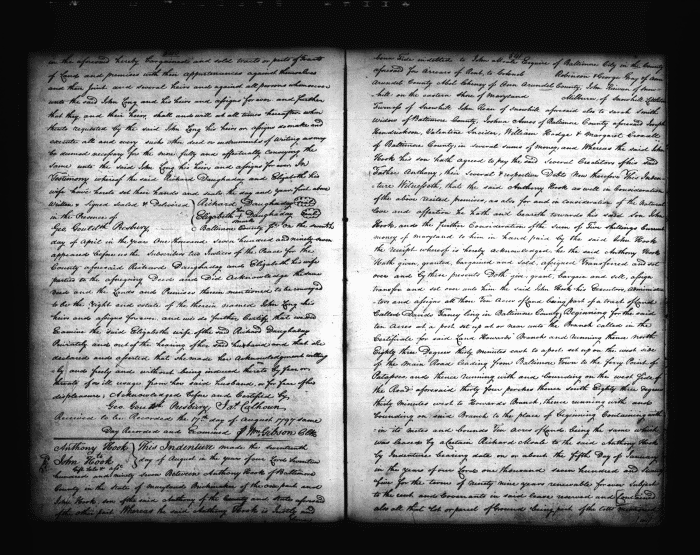 in the aforesaid hereby bargained and sold tracts or parts of tracts
of Land and premises with their appurtenances against themselves
and their Joint and several heirs and against all persons whomsoever
unto the said John Long and his heirs and assigns forever and further
that they, and their heirs, shall and will at all times hereafter when
thereto requested by the said John Long his heirs or assigns make and
execute all and every such other deed or instruments of writing as may
be deemed necessary for the more fully and effectually conveying the
same unto the said John Long his heirs and assigns forever In
Testimony whereof the said Rickard Daughaday and Elizabeth his
wife have hereto set their hands and seals the day and year first above
Written
Signed Sealed & Delivered
in the Presence of
Geo Gouldth Presbury
Rickard Daughaday
Elizabeth Daughaday
Baltimore County On the ninth
day of April in the year One thousand seven hundred and ninety seven
appeared before us the Subscribers two Justices of the Peace for the
County aforesaid Rickard Daughaday and Elizabeth his wife
parties to the aforegoing Deed and Did acknowledge the same
Deed and the Lands and Premises therein mentioned to be conveyed
to be the Right and estate of the therein named John Long his
heirs and assigns forever, and we do further Certify that we did
Examine the said Elizabeth wife of the said Rickard Daughaday
Privately and out of the hearing of her said husband and that she
declared and asserted that she made her acknowledgment willing
ly and freely and without being induced thereto by fear or
threats of ill usage from her said husband, or for fear of his
displeasure, Acknowledged before and Certified by,
Geo Gouldth Presbury Jas Calhoun
Received to be Recorded the 17th day of August 1797 same
Day Recorded and Examined Wm Gibson Clk
Anthony Hook
John Hook
This Indenture made the seventeenth
day of August in the year of our Lord seventeen
hundred and ninety seven Between Anthony Hook of Baltimore
County in the State of Maryland of the one part and
John Hook son of the said Anthony of the County and State aforesaid
of the other part Whereas the said Anthony Hook is justly and
bona fide indebted to John Moale Esquire of Baltimore City in the County
aforesaid for Arrears of Rent, to Robinson George Gray of Ann
Arundel County Abel Cheney of Ann Arundel County, John of Snow
hill on the eastern Shore of Maryland of Snowhill
of Snowhill John of Snowhill aforesaid also to Sarah Smith
Widow of Baltimore County Joshua Jones of Baltimore County aforesaid Joseph
Hendrickson, Valentine Snider, William Hodge & Margaret
of Baltimore County, in several sums of money, and Whereas the said John
Hook his son hath agreed to pay the said several Creditors of his said
Father Anthony, their several & respective Debts Now therefore This Inden
ture Witnesseth, that the said Anthony Hook as well in Consideration
of the above recited premises, as also for and in consideration of the natural
Love and affection he hath and beareth towards his said Son John
Hook, and the further Consideration of the Sum of Five Shillings Current
money of maryland to him in hand paid by the said John Hook
the receipt whereof is hereby acknowledged he the said Anthony Hook
Hath given, granted, bargained and sold, assigned Transferred and set
over and by these presents Doth give, grant, bargain and sell, assign
transfer and set over unto him the said John Hook his Executors, administra
tors and assigns all those Ten Acres of Land being part of a tract of Land
Called Davids Fancy lying in Baltimore County Beginning for the said
ten Acres at a post set up at or near unto the Branch called in the
Certificate for said Land Howards Branch and running thence north
Eighty three Degrees thirty minutes east to a post set up on the west side
of the Main Road leading from Baltimore Town to the ferry Point of
Patapsco and thence Running with and bounding on the west side of
the Road aforesaid thirty four perches thence South Eighty three degrees
thirty minutes west to Howards Branch, thence running with and
bounding on said Branch to the place of beginning Containing with
in its metes and bounds Ten Acres of Land, being the same which
was leased by a Certain Richard Moale to the said Anthony Hook
by Indenture bearing date on or about the fifth Day of January
in the year of our Lord one thousand seven hundred and ninety
five for the term of ninety nine years renewable forever Subject
to the rent and Covenants in said lease reserved and Contained
also all that Lot or parcel of Ground being part of the